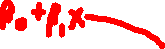 β₀+β₁x